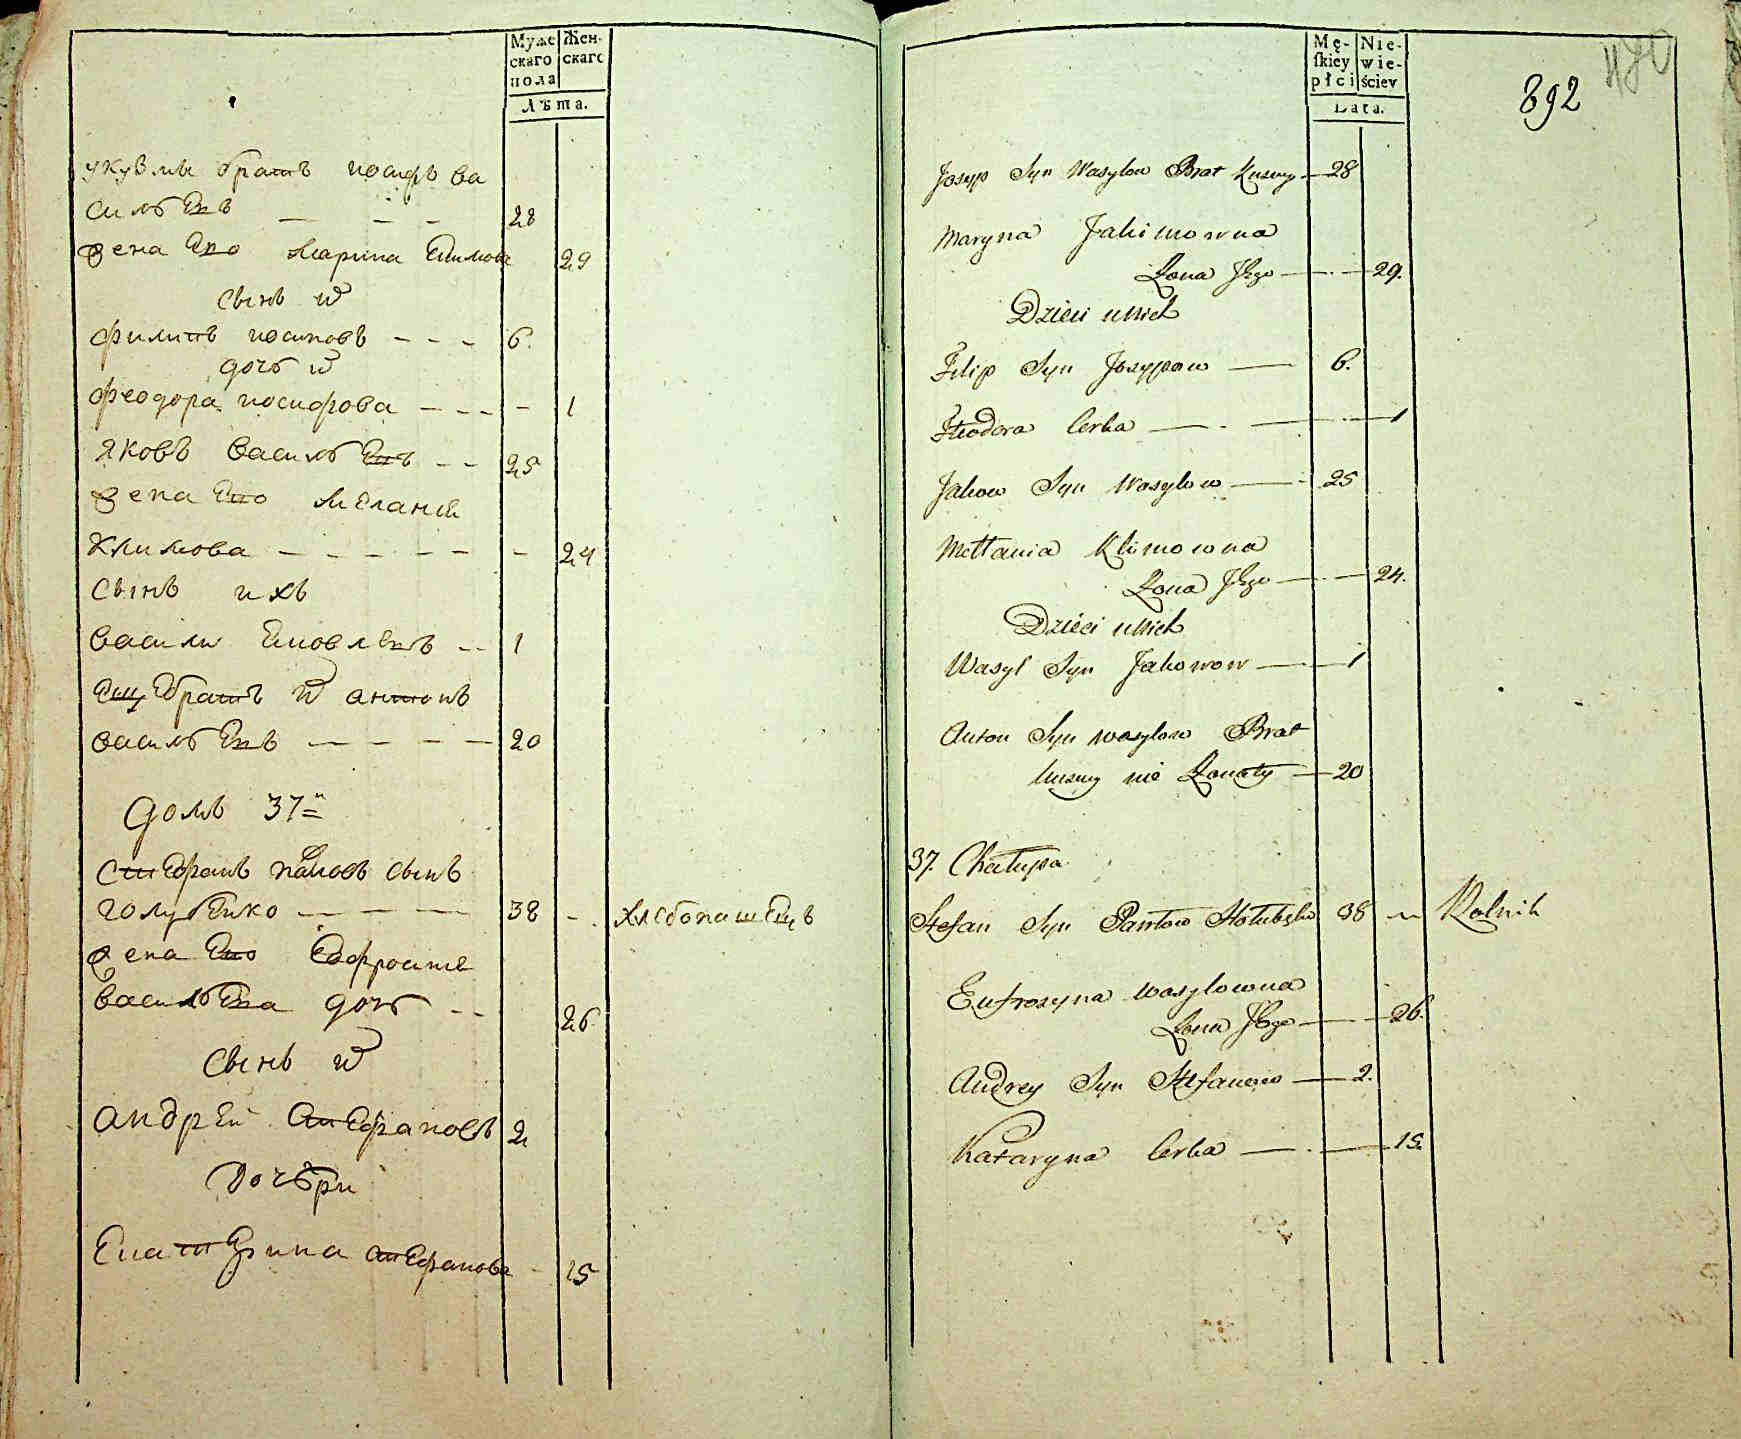 Муже
скаго
пола
Жен-
скаго
Лѣта.
укузмы братъ иосифъ ва
сильевъ — — — 28
жена Его марина Екимова 29
сынъ их
филипъ иосиповъ - - - 6.
дочь их
феодора иосифова - - - - 1
яковъ васильевъ - - 25
жена Его мелания
климова — — — — — - 24
сынъ ихъ
василий Яковлевъ - - 1
Еще братъ их антонъ
васильевъ — — — — — 20
домъ 37й
стефанъ павловъ сынъ
голубенко — — — — 38 - хлебопашецъ
жена Его Евфросиния
васильева дочь - - 26
сынъ их
андрей стефановъ 2
дочери
Екатерина стефанова - 15
Mę-
skiey
płci
Nie-
wie-
ściey
Lata.
470
892
Josyp Syn Wasylow Brat Kuzmy — 28
Maryna Jakimowna
Żona Jego — . — 29.
Dzieci u nich
Filip Syn Josypow — 6.
Fteodora Corka — . — . — 1
Jakow Syn Wasylow — - 25
Mełłania Klimowna
Żona Jego — . — 24.
Dzieci u nich
Wasyl Syn Jakowow — — 1
Anton Syn Wasylow Brat
Kuzmy nie Żonaty — 20
37. Chałupa
Stefan Syn Pawłow Hołubęko 38 Rolnik
Eufrozyna Wasylowna
Żona Jego — . — 26.
Andrey Syn Stefanow — 2.
Kataryna Corka — . — 15.